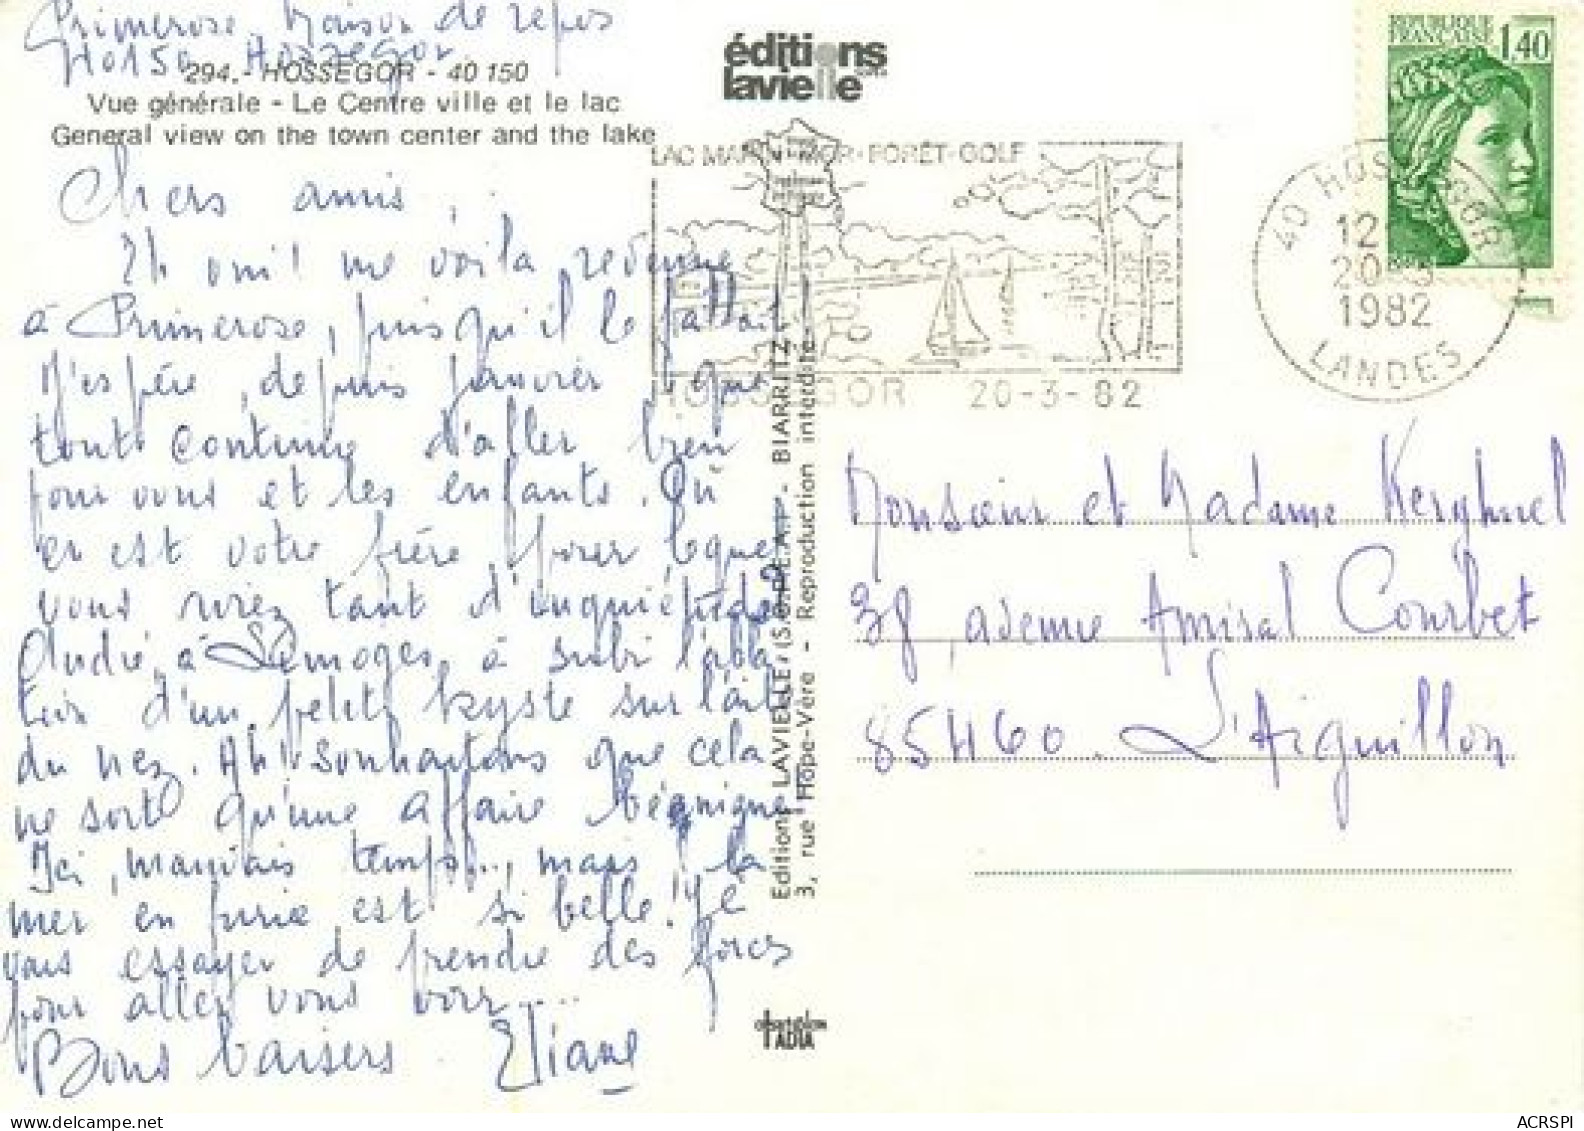 Primerose. Maison de repos
40150 Hossegor
294.- HOSSEGOR - 40 150
Vue générale - Le Centre ville et le lac
General view on the town center and the lake
Chers amis,
Eh oui! me voila revenue
à Primerose, puisqu'il le fallait!
J'espère, depuis janvier, que
tout continue d'aller bien
pour vous et les enfants. Où
en est votre frère pour lequel
vous aviez tant d'inquiétude?
André, à Limoges, à subi l'abla
tion d'un petit kyste sur l'aile
du nez. Ah! souhaitons que cela
ne sort qu'une affaire bégnigne
Ici, mauvais temps..., mais la
mer en furie est si belle! Je
vais essayer de prendre des forces
pour aller vous voir....
Bons baisers. Eliane
éditions
lavielle
LAC MARIN-MER-FORÊT-GOLF
HOSSEGOR 20-3-82
Editions LAVIELLE (S.O.P.H.E.A.P.) - BIARRITZ
3, rue Hope-Vère - Reproduction interdite
REPUBLIQUE
FRANÇAISE
1,40
40 HOSSEGOR
12
20-3
1982
LANDES
Monsieur et Madame Kerghuel
38, avenue Amiral Courbet
85460. L'Aiguillon
IADIA
www.delcampe.net
ACRSPI